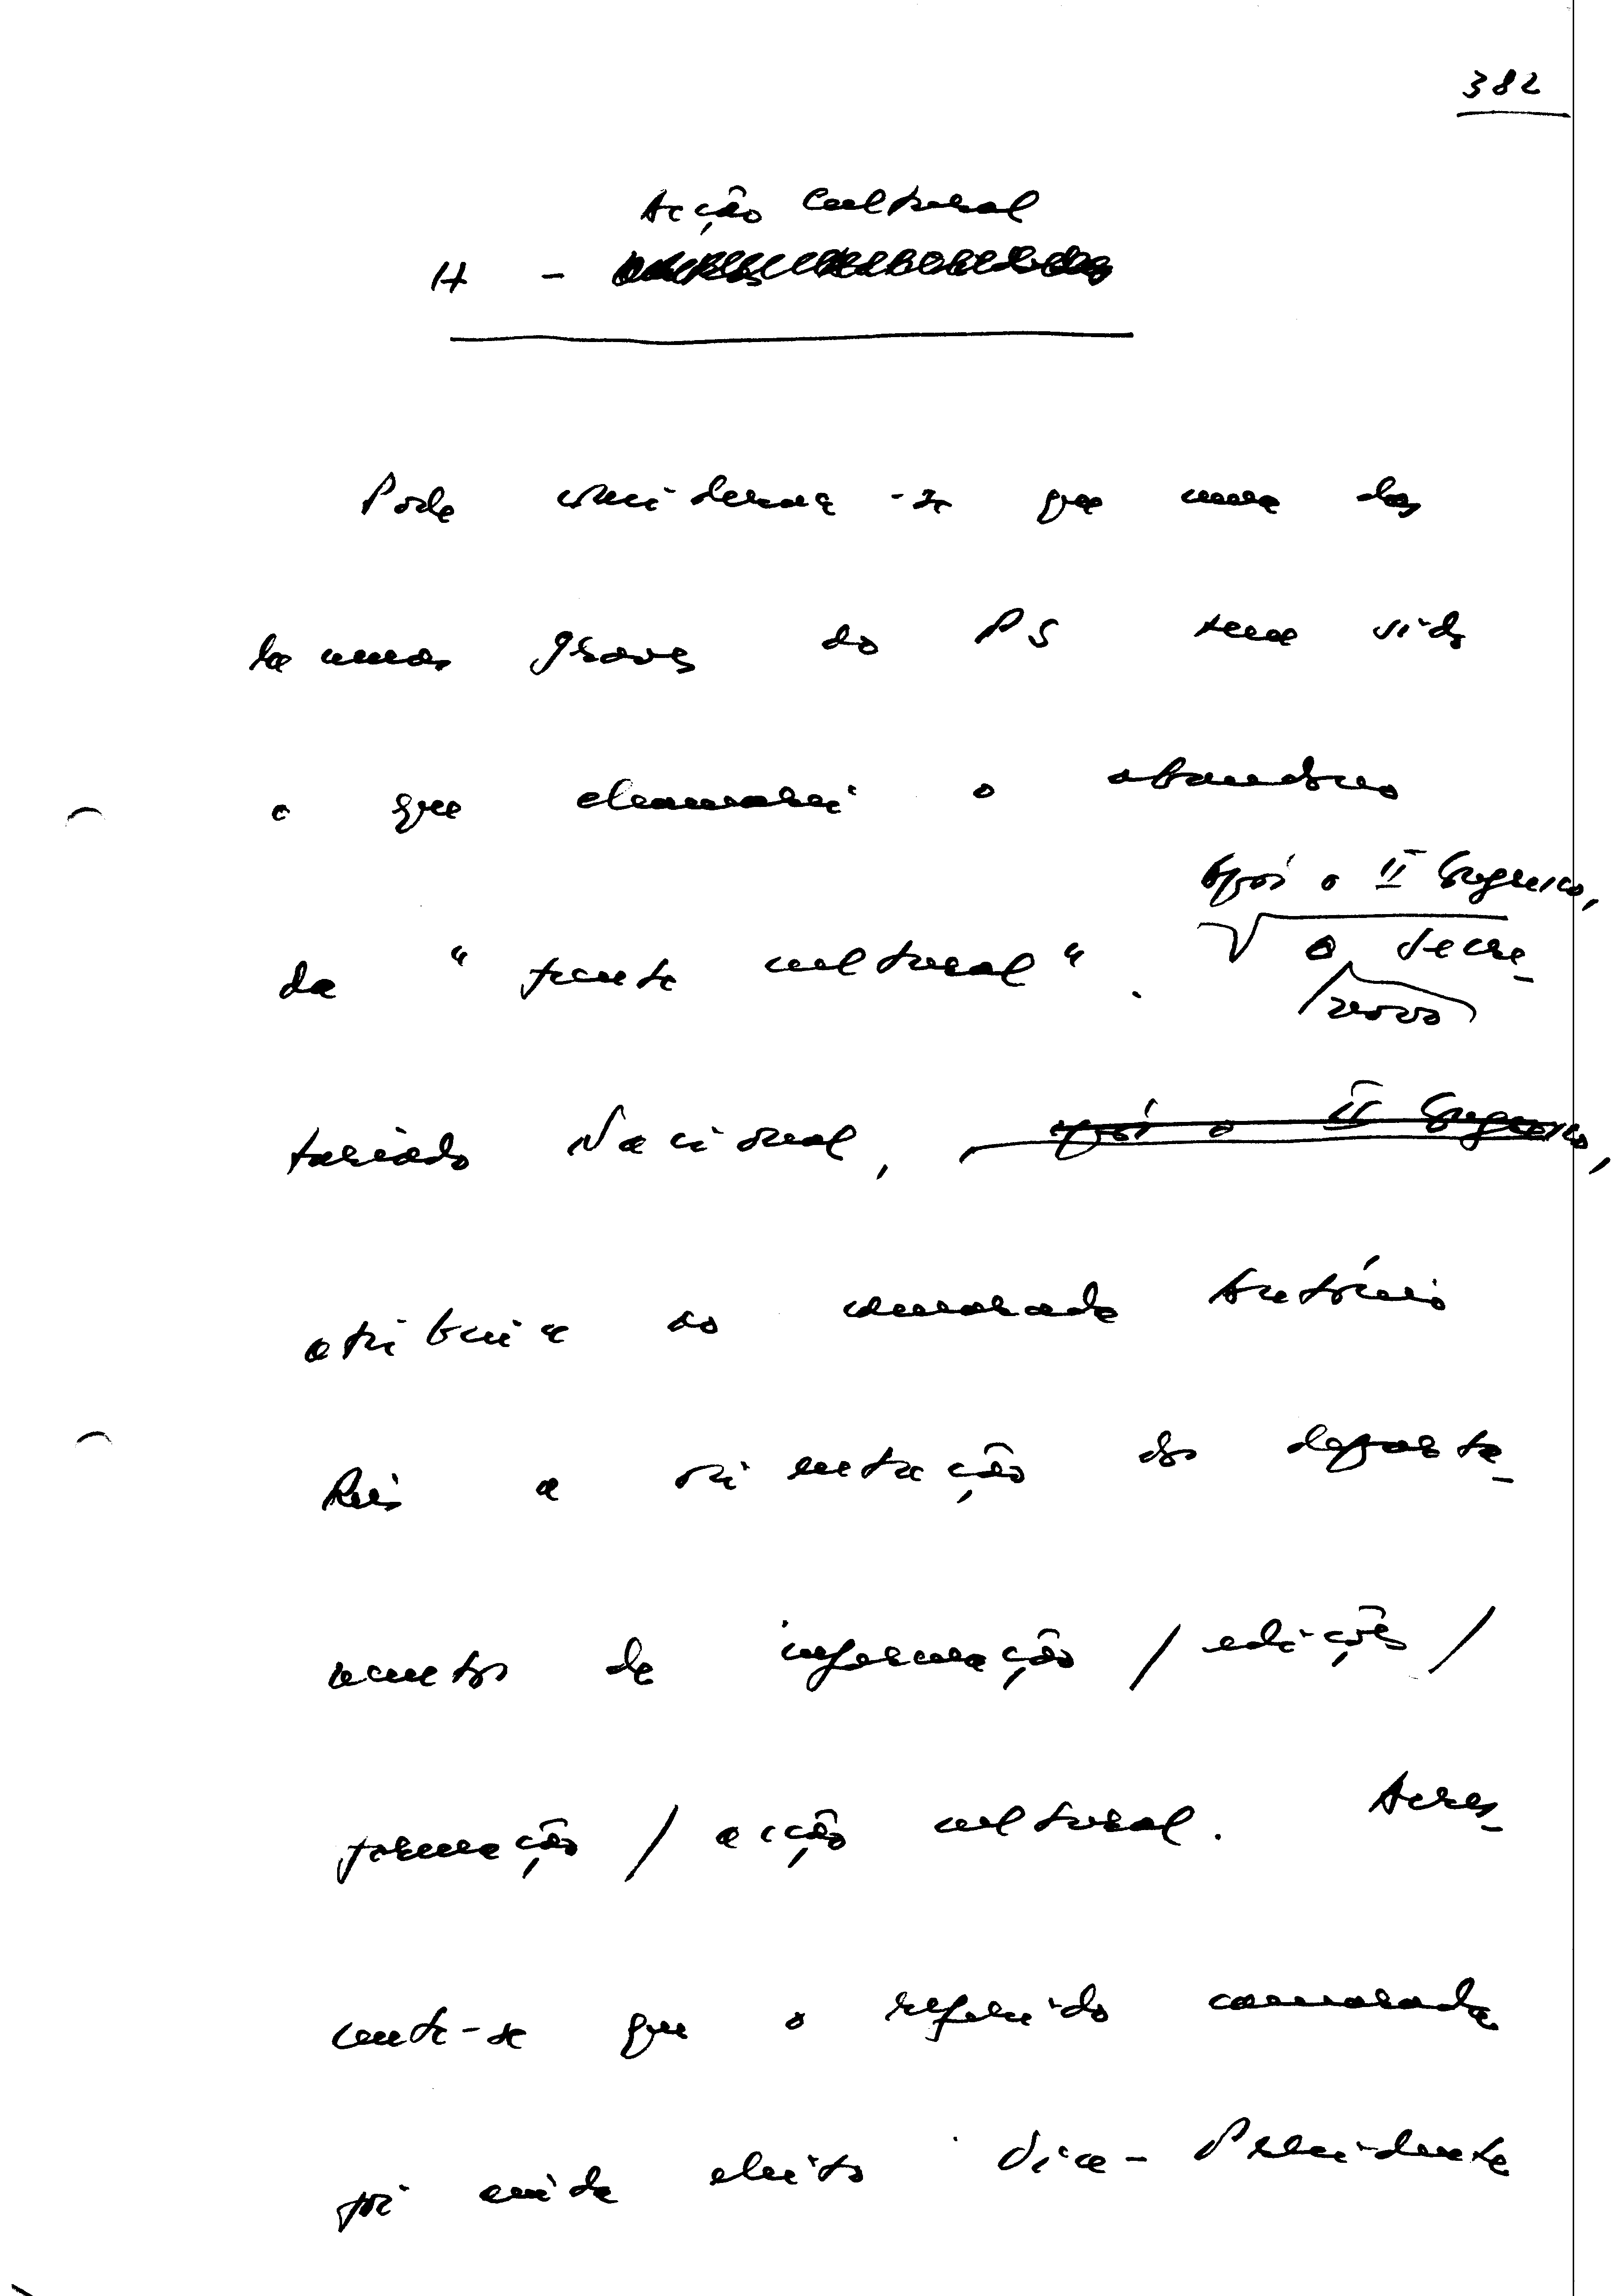 382
Acção Cultural
H -
Pode considerar-se que uma das
lacunas graves do PS tem sido
o que chamarei o abandono
após o II Congresso,
da "frente cultural". O Secre-
novo
tariado Nacional, após o II Congresso,
atribuiu ao camarada António
Reis a orientação do departa-
mento de informação / edições /
formação / acção cultural. Acres-
cente-se que o referido camarada
foi ainda eleito Vice-Presidente